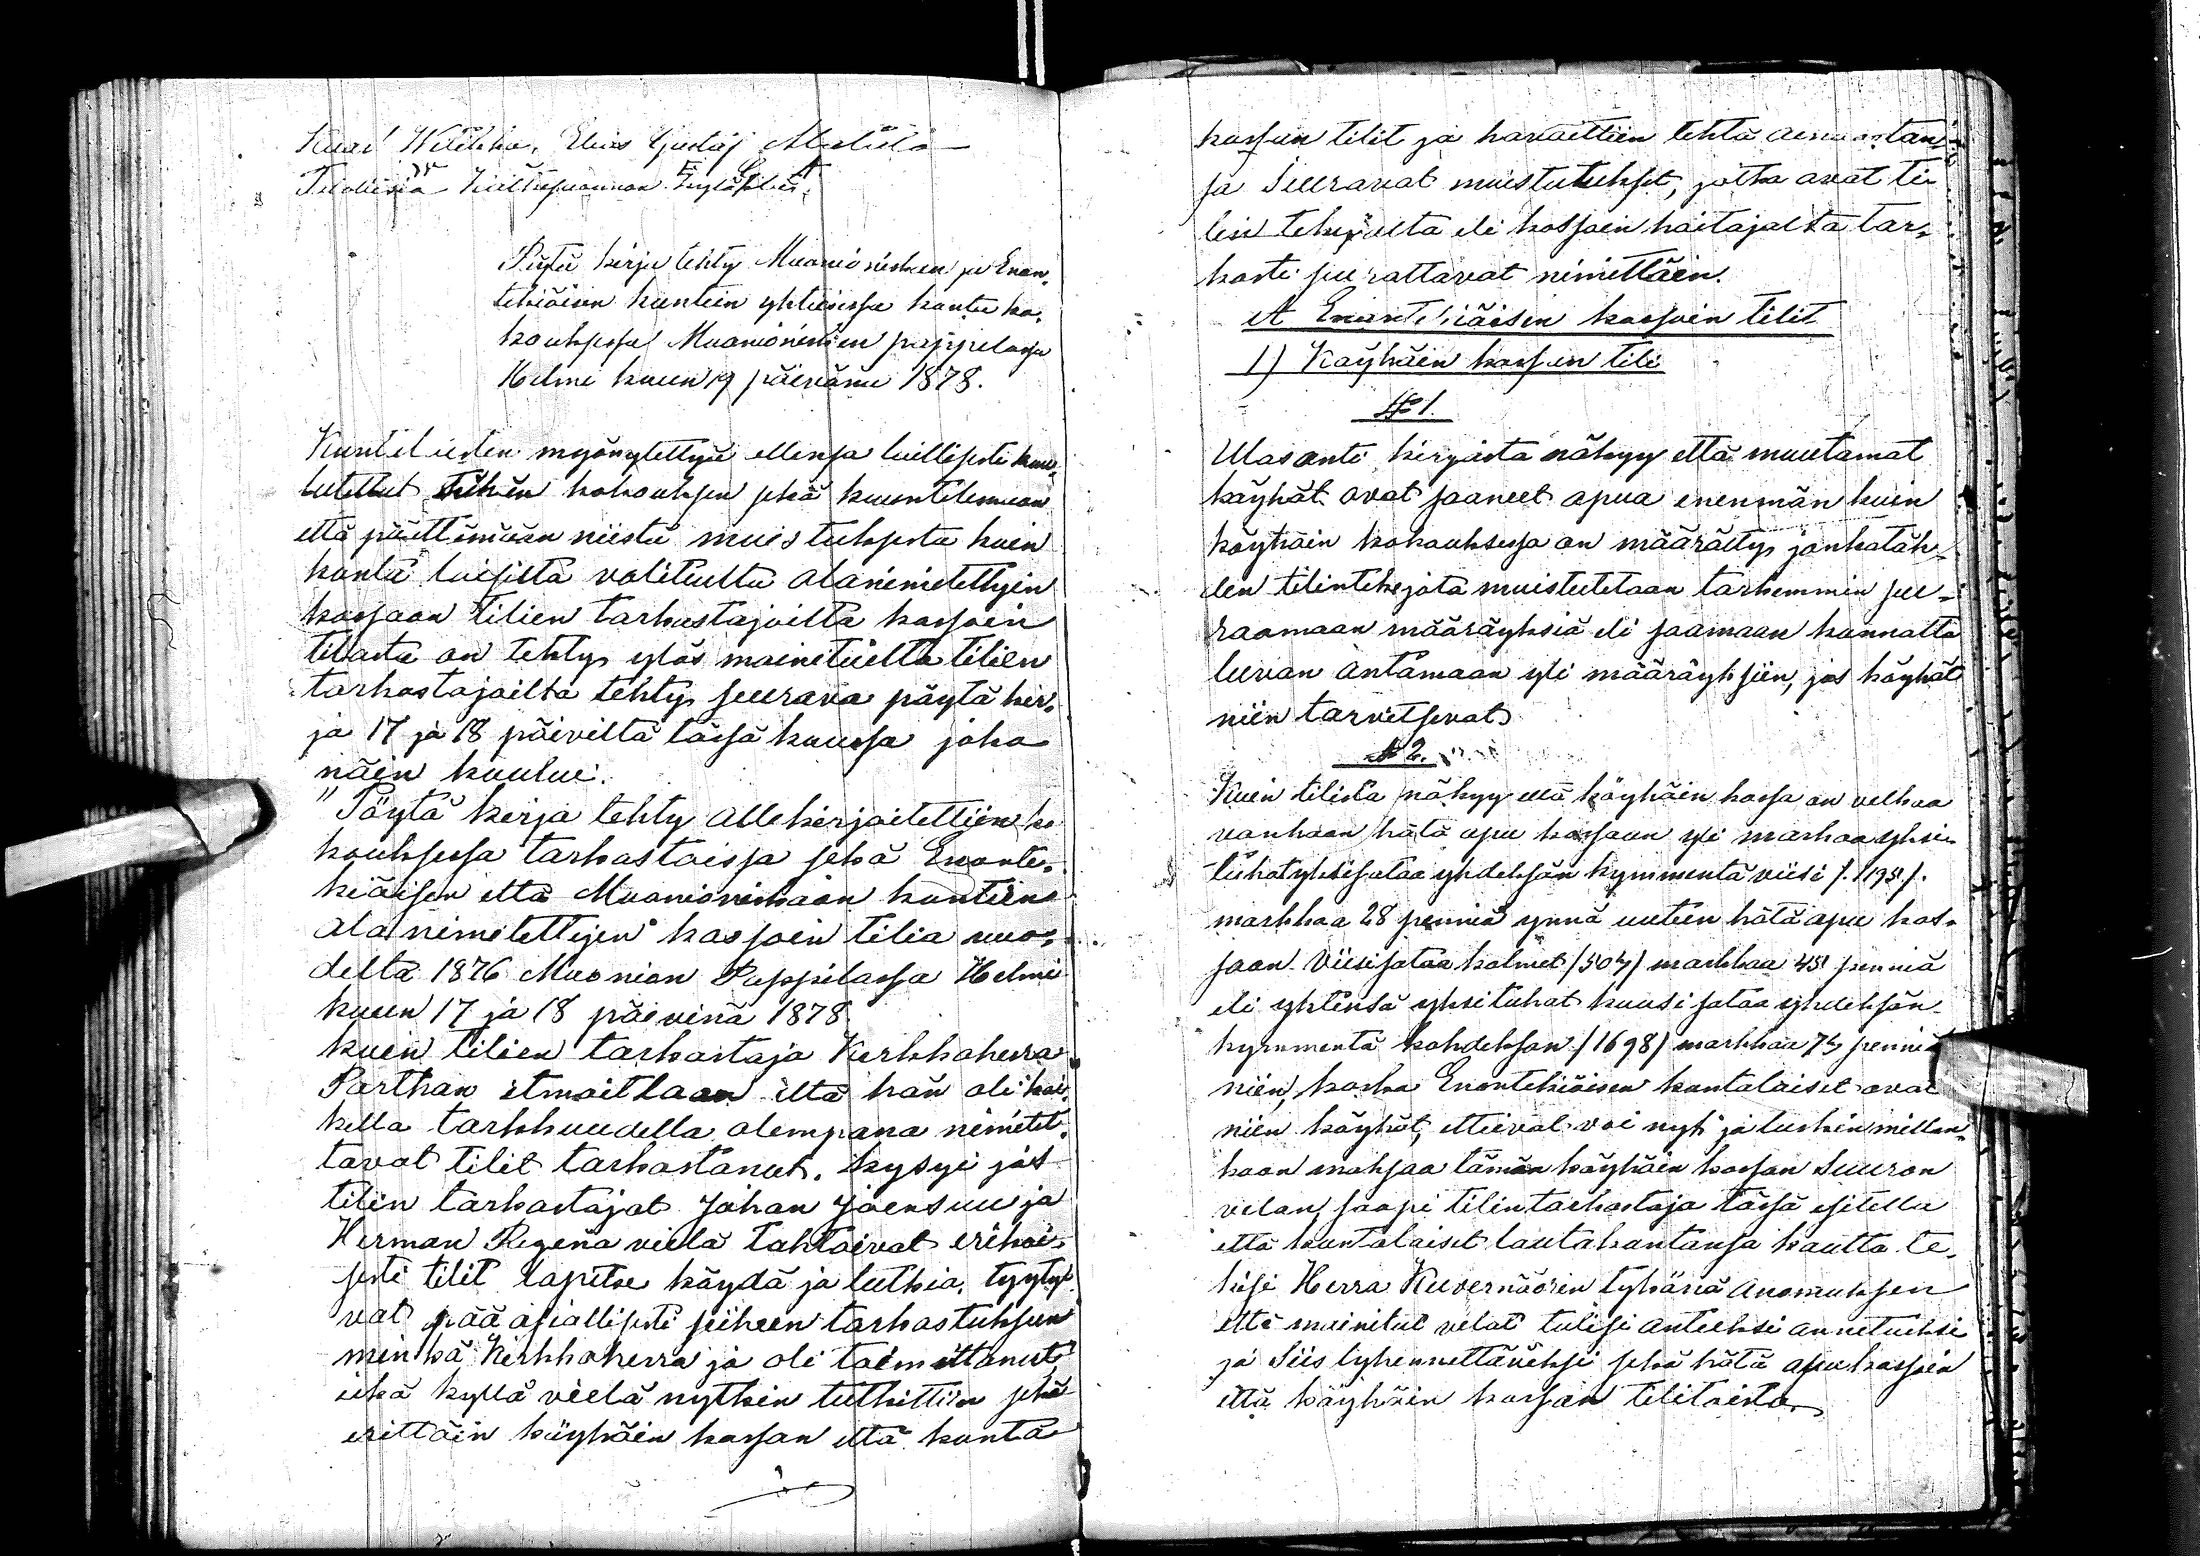 Elias Gustaf
Pöytä kirja tehty Muonionisken ja Enon,
tekiäisen kuntein yhteisessä kunta ko,
kouksessa Muonionisken pappilassa
Helmi kuun 19 päivänä 1878.
Kuntalaisten myönytettyä ellensä laillisesti kuu,
lutettut tähän kokouksen sekä kuuntelemaan
että päättämään niistä muistuksista kuin
kunta laisilta valituilta alanimitettyin
kassaan tilien tarkastajoilta kassoin
tilasta on tehty, ylös mainituilta tilien
tarkastajoilta tehty seurava päytä kir,
ja 17 ja 18 päiviltä tässä kuussa joka
näin kuuluu:
"Pöytä kirja tehty allekirjoitettiin ko
kouksessa tarkastaissa sekä Enonte,
kiäisen että Muonioniskan kuntien
ala nimitettyjen kassoin tilia vuo,
delta 1876 Muonion Pappilassa Helmi
kuun 17 ja 18 päivinä 1878.
kuin tilien tarkastaja Kirkkoherra
Parthan ilmoittaan että hän oli kai,
kella tarkkuudella alempana nimitet,
tavat tilit tarkastanut, kysyi jos
tilin tarkastajat Johan Joensuu ja
Herman Regina vielä tahtoivat erikoi,
sesti tilit lapitse käydä ja tutkia, tyyty,
vat pää asiallisesti siiheen tarkastuksen
minkä Kirkkoherra jo oli toimittanut
eikä kyllä vielä nytkin tutkittiin sekä
erittäin käyhäin kassan että kunta
kassan tilit ja havaittiin tehtä
ja Seuravat muistutukset, jotka avat ti
lin tekijältä eli kassain haitajalta tar,
kasti seurattavat nimittäin.
A Enontekiäisen kassoin tilit
1) Käyhäin kassan tili
№ 1.
Ulosanti kirjasta näkyy että muutamat
käyhät ovat saaneet apua enenmän kuin
käyhäin kokouksessa on määrätty, jonkatäh-
den tilintekejätä muistutetaan tarkemmin seu-
raamaan määräyksiä eli saamaan kunnalta
luvan antamaan yli määräyksiin, jos käyhät
niin tarvitsevat
№ 2.
Kuin tilista näkyy että käyhäin kassa on velkaa
vanhaan hätä apu kassaan yli markaa yksi-
tuhatyksisataa yhdeksän kymmentä viisi /.1195/.
markkaa 28 penniä ynnä uuteen hätä apu kas-
saan Viisisataa kolmet (503) markkaa 45 penniä
eli yhtensä yksituhat kuusi sataa yhdeksän-
kymmentä kahdeksan /1698/ markkaa 73 penniä
niin, koska Enontekiäisen kuntalaiset ovat
niin käyhät, etteivät voi nyt ja tuskin millon,
kaan maksaa tämän käyhäin kassan Suuron
velan, saapi tilintarkastaja tässä esitellä
että kuntalaiset lautakuntansa kautta te,
kisi Herra Kuvernöörin tykänä anomuksen
että mainitut velat tulisi anteeksi annetuksi
ja Siis lyhennettäneksi sekä hätä apu kassoin
että käyhäin kassan tilitoista